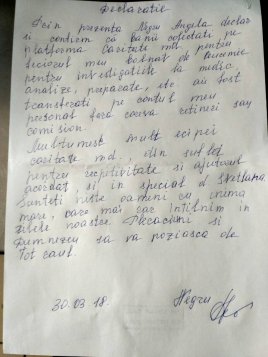 Declaratie
Prin prezenta Negru Angela declar
si confirm că banii colectati pe
platforma Caritate md. pentru
feciorul meu bolnav de leucemie
pentru investigatiile la medic,
analize, preparate, etc. au fost
transferati pe contul meu
personal fara careva retineri sau
comision.
Multumesc mult echipei
caritate md., din suflet
pentru receptivitate si ajutorul
acordat, si in special d. Svetlana
Sunteti niste oameni cu inima
mare, care mai rar intilnim in
zilele noastre. Plecaciuni si
Dumnezeu sa va pazeasca de
tot raul.
30.03.18. Negru